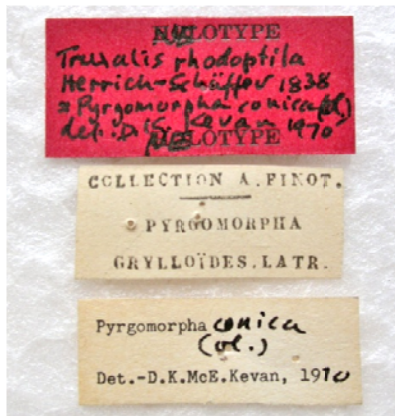 NEOTYPE
Truxalis rhodoptila
Herrich-Schäffer 1838
= Pyrgomorpha conica (Ol.)
det. D.K. Kevan 1970
NEOTYPE
COLLECTION A. FINOT.
PYRGOMORPHA
GRYLLOÏDES. LATR.
Pyrgomorpha conica
(Ol.)
Det.-D.K.McE.Kevan, 1970